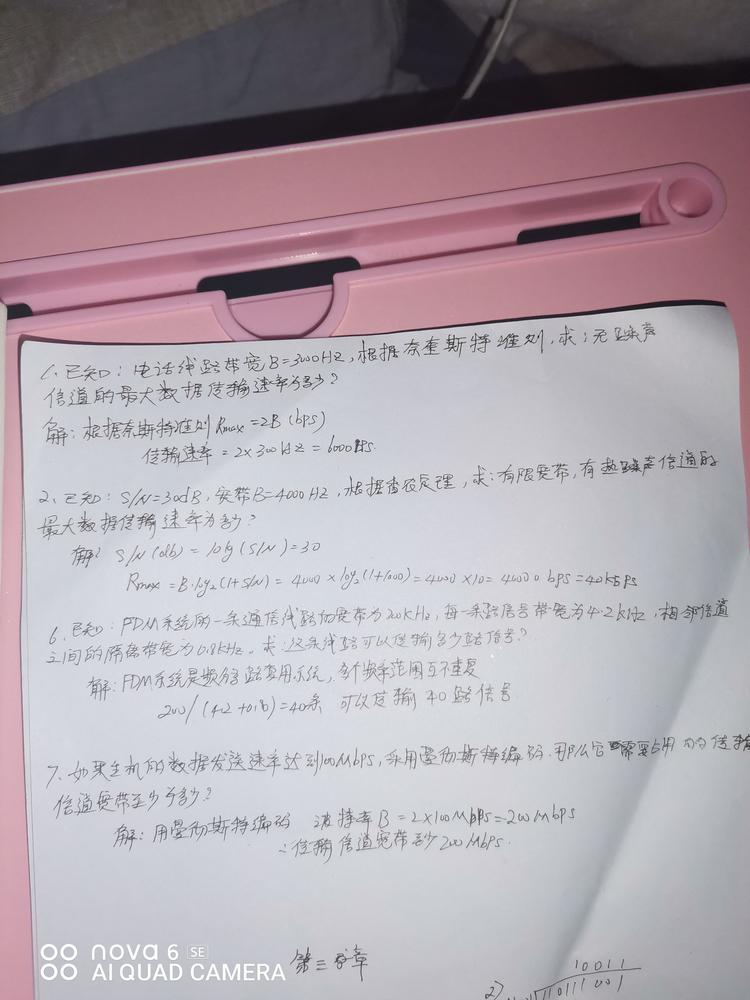 1、已知：电话线路带宽B=3000Hz,根据奈奎斯特准则,求：无噪声
信道的最大数据传输速率为多少?
解：根据奈斯特准则 Rmax=2B (bps)
传输速率 = 2×3000Hz = 6000bps.
2、已知：S/N=30dB,宽带B=4000Hz,根据香农定理,求：有限宽带,有热噪声信道的
最大数据传输速率为多少?
解：S/N(db) = 10lg(S/N) = 30
Rmax = B·log₂(1+S/N) = 4000×log₂(1+1000) = 4000×10 = 40000bps = 40kbps
6、已知：FDM系统的一条通信线路的宽带为200kHz,每一条路信号带宽为4.2kHz,相邻信道
之间的隔离带宽为0.8kHz。求：这条线路可以传输多少路信号?
解：FDM系统是频分多路复用系统,多个频率范围互不重复
200/(4.2+0.8)=40条 可以传输40路信号
7、如果主机的数据发送速率达到100Mbps,采用曼彻斯特编码.那么它需要占用的传输
信道宽带至少为多少?
解：用曼彻斯特编码 波特率B=2×100Mbps=200Mbps
∴传输信道宽带至少200Mbps.
第三章
10011
2) 110111001
nova 6 SE
AI QUAD CAMERA